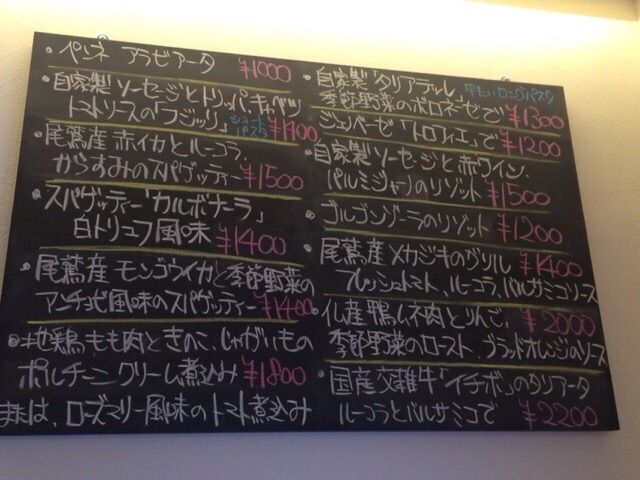 ・ペンネ アラビアータ ¥1000
・自家製ソーセージとトリッパ、キャベツ
トマトソースの「フジッリ」ショートパスタ ¥1400
・尾鷲産 赤イカとルーコラ、
からすみのスパゲッティー ¥1500
・スパゲッティー「カルボナーラ」
白トリュフ風味 ¥1400
・尾鷲産 モンゴウイカと季節野菜の
アンチョビ風味のスパゲッティー ¥1400
・地鶏もも肉ときのこ、じゃがいもの
ポルチーニクリーム煮込み ¥1800
または、ローズマリー風味のトマト煮込み
・自家製「タリアテッレ」平たいロングパスタ
季節野菜のボロネーゼで ¥1300
・ジェノベーゼ「トロフィエ」で ¥1200
・自家製ソーセージと赤ワイン、
パルミジャーノのリゾット ¥1500
・ゴルゴンゾーラのリゾット ¥1200
・尾鷲産 メカジキのグリル ¥1400
フレッシュトマト、ルーコラ、バルサミコソース
・仏産 鴨ムネ肉とりんご、 ¥2000
季節野菜のロースト、ブラッドオレンジのソース
・国産交雑牛「イチボ」のタリアータ
ルーコラとバルサミコで ¥2200